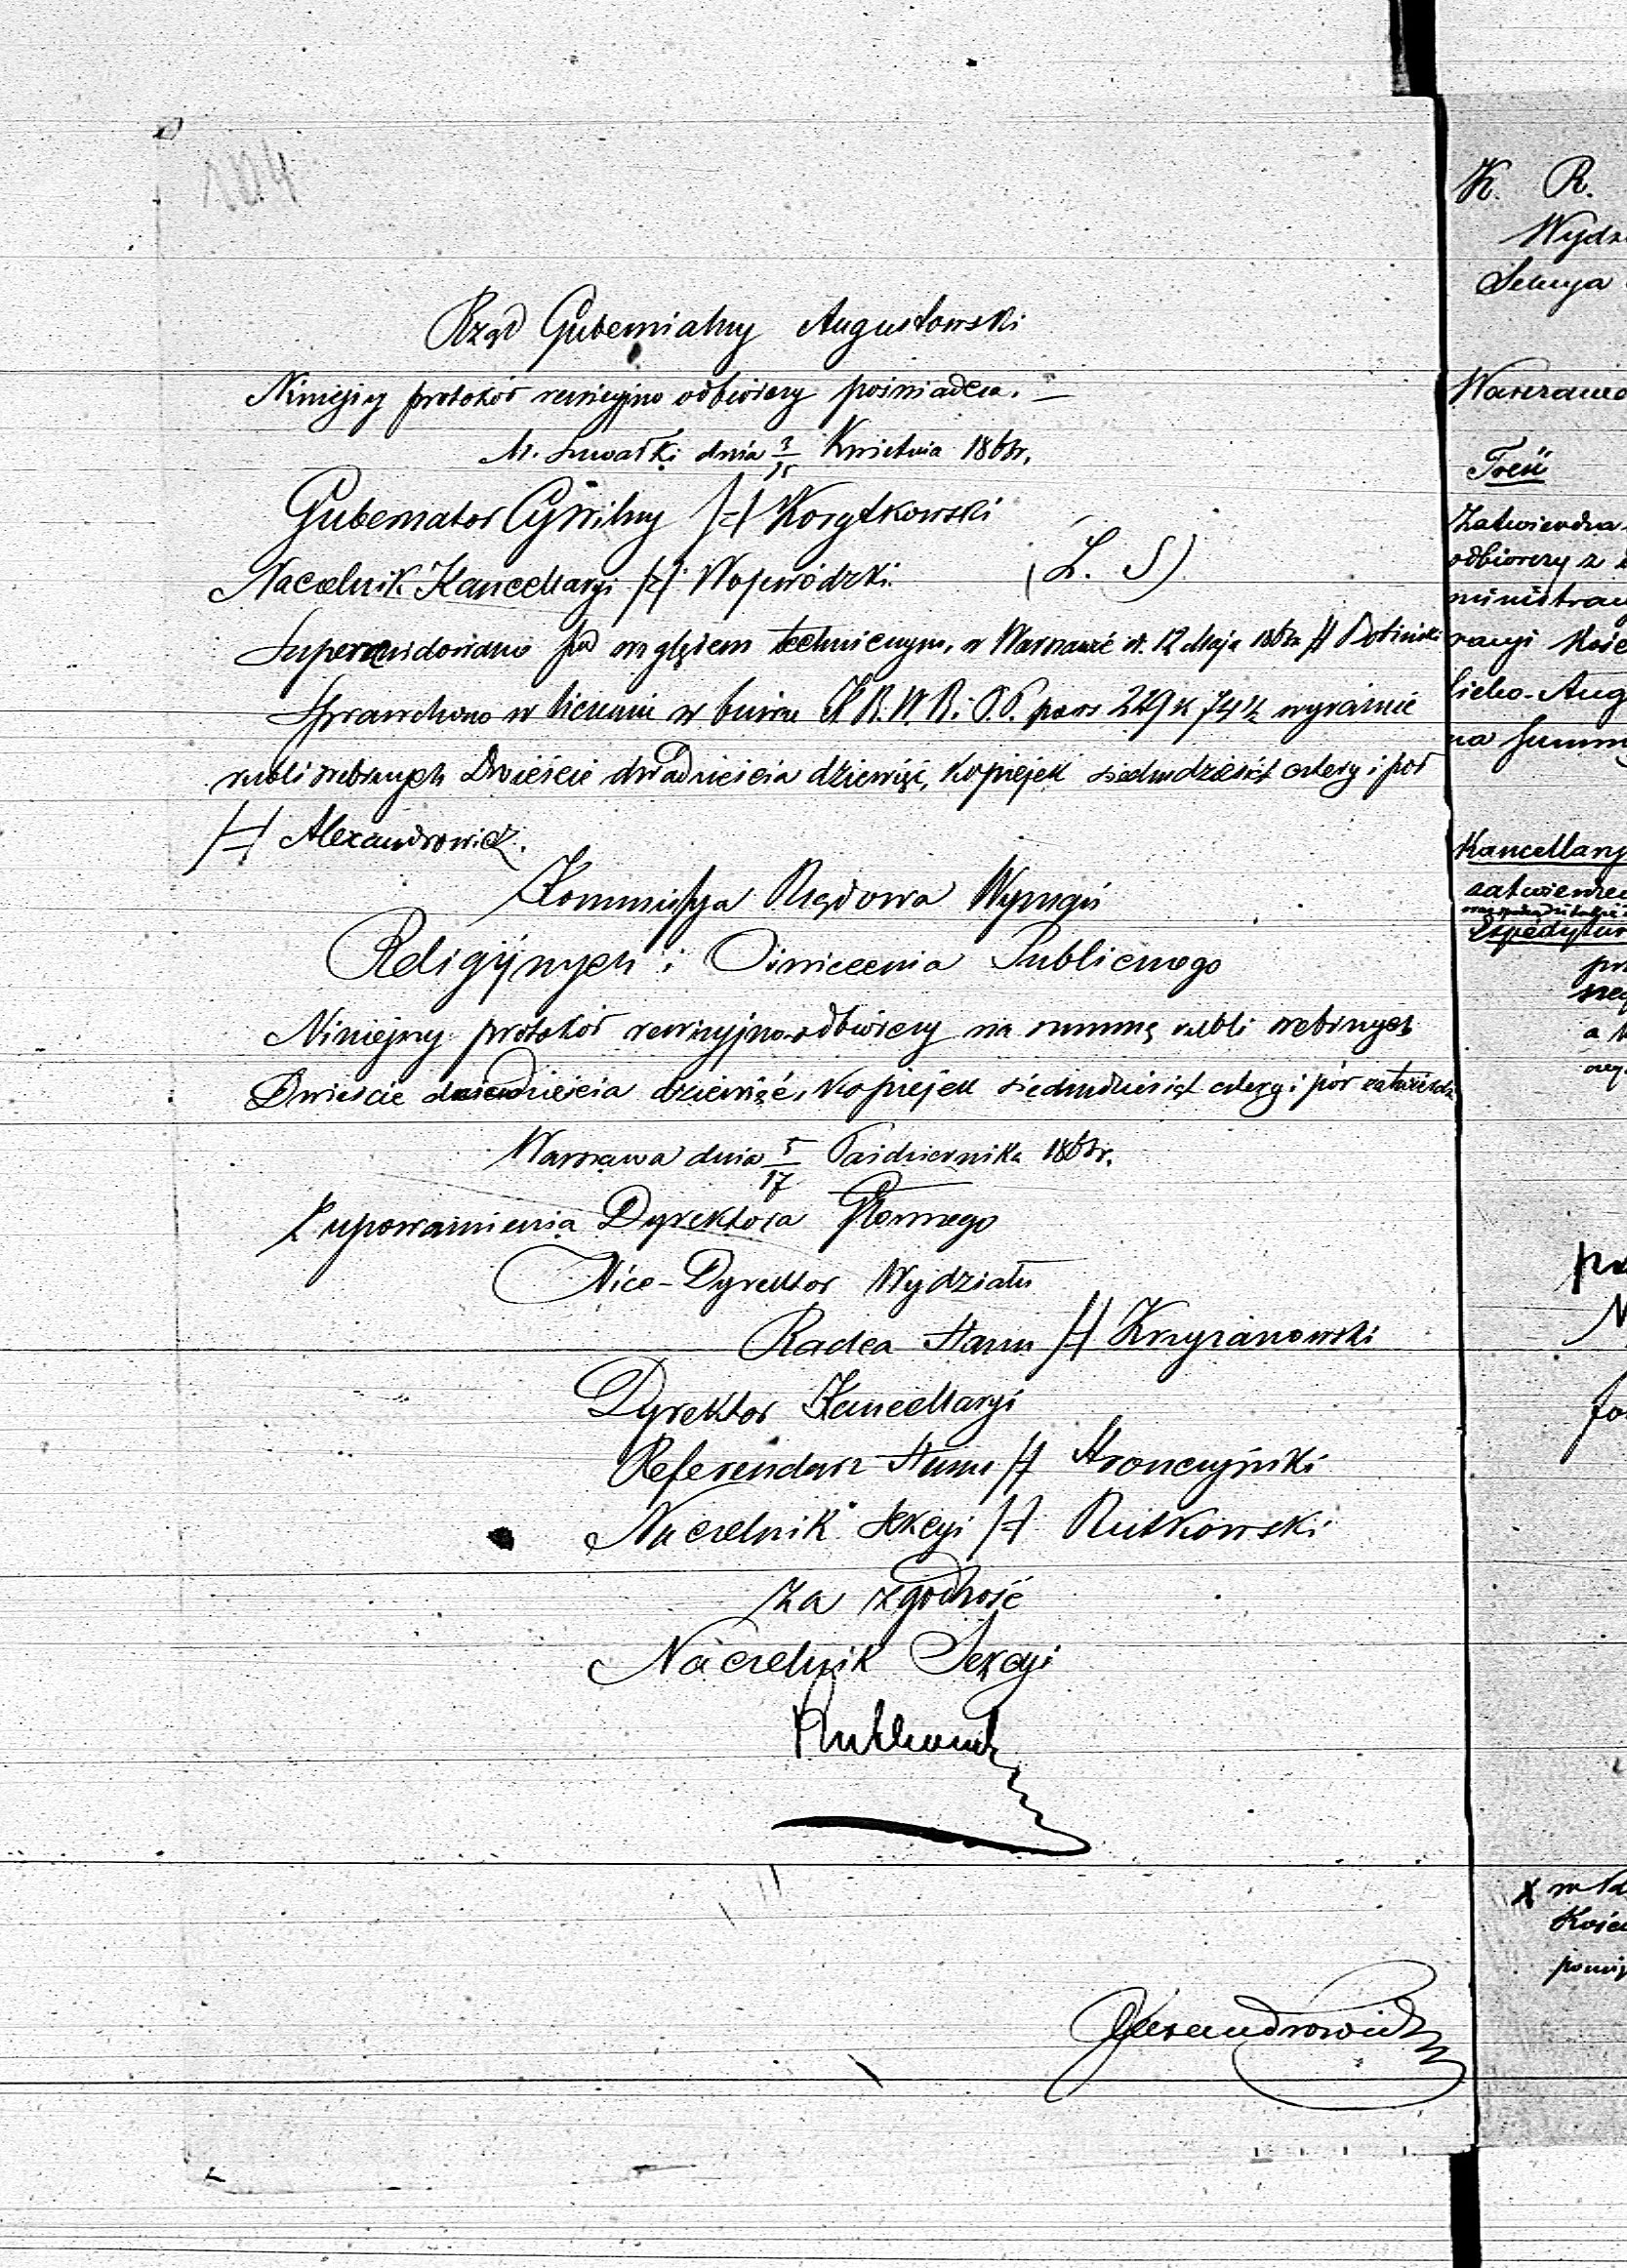 104
Rząd Gubernialny Augustowski
Niniejszy protokół rewizyjno odbiorczy poświadcza. —
M. Suwałki dnia 3/15 Kwietnia 186 r.
Gubernator Cywilny /-/ Korytkowski
(L. S)
Naczelnik Kancellaryi /-/ Wojewódzki.
Superrewidowano pod względem technicznym, w Warszawie d. 12 Maja
Sprawdzono w liczeniu w biurze K R. W R. i O. P. na rs 229 k 74½ wyraźnie
rubli srebrnych Dwieście dwadzieścia dziewięć, kopiejek siedmdziesiąt cztery i pół
/-/ Alexandrowicz.
Kommissya Rządowa Wyznań
Religijnych i Oświecenia Publicznego
Niniejszy protokół rewizyjno-odbiorczy na summę rubli srebrnych
Dwieście dwadzieścia dziewięć, kopiejek siedmdziesiąt cztery i pół zatwierdza
Warszawa dnia 5/17 Października 186 r.
Z upoważnienia Dyrektora Głównego
Vice-Dyrektor Wydziału
Radca Stanu /-/ Krzyżanowski
Dyrektor Kancellaryi
Referendarz Stanu /-/ Stronczyński
Naczelnik Sekcyi /-/ Rutkowski
Za zgodność
Naczelnik Sekcyi
Rutkowski
Alexandrowicz
K. R.
Treść
odbiorczy z